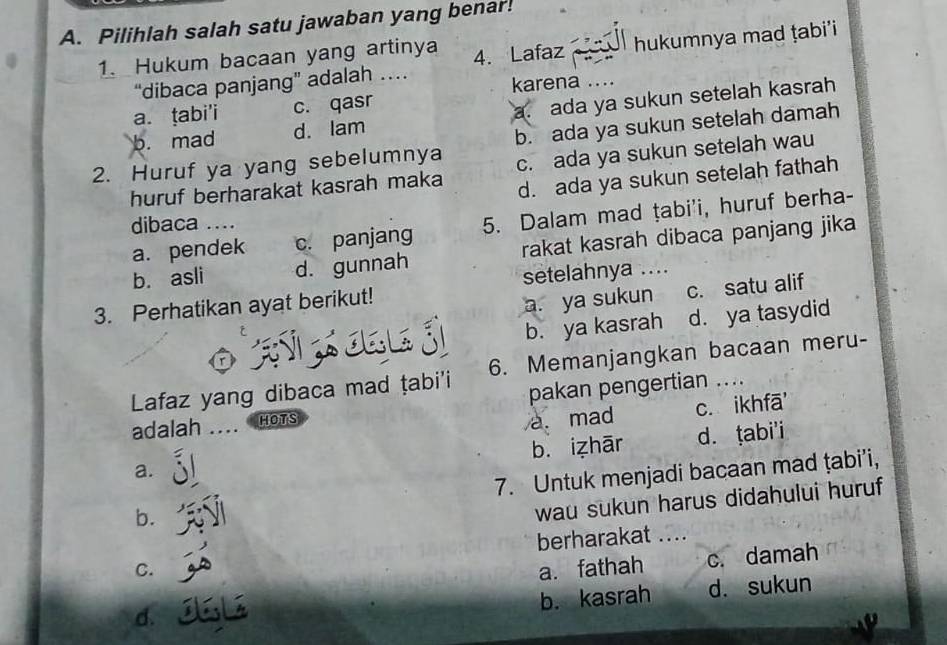 A. Pilihlah salah satu jawaban yang benar!
1. Hukum bacaan yang artinya
"dibaca panjang" adalah ....
a. ṭabi'i c. qasr
b. mad d. lam
2. Huruf ya yang sebelumnya
huruf berharakat kasrah maka
dibaca ....
a. pendek c. panjang
b. asli d. gunnah
3. Perhatikan ayat berikut!
اِنَّ شَانِئَكَ هُوَ الْاَبْتَرُ ࣖ ٣
Lafaz yang dibaca mad ṭabi'i
adalah .... HOTS
a. اِنَّ
b. الْاَبْتَرُ
c. هُوَ
d. شَانِئَكَ
4. Lafaz الْيَتِيْمَ hukumnya mad ṭabi'i
karena ....
a. ada ya sukun setelah kasrah
b. ada ya sukun setelah damah
c. ada ya sukun setelah wau
d. ada ya sukun setelah fathah
5. Dalam mad ṭabi'i, huruf berha-
rakat kasrah dibaca panjang jika
setelahnya ....
a. ya sukun c. satu alif
b. ya kasrah d. ya tasydid
6. Memanjangkan bacaan meru-
pakan pengertian ....
a. mad c. ikhfā'
b. iẓhār d. ṭabi'i
7. Untuk menjadi bacaan mad ṭabi'i,
wau sukun harus didahului huruf
berharakat ....
a. fathah c. damah
b. kasrah d. sukun